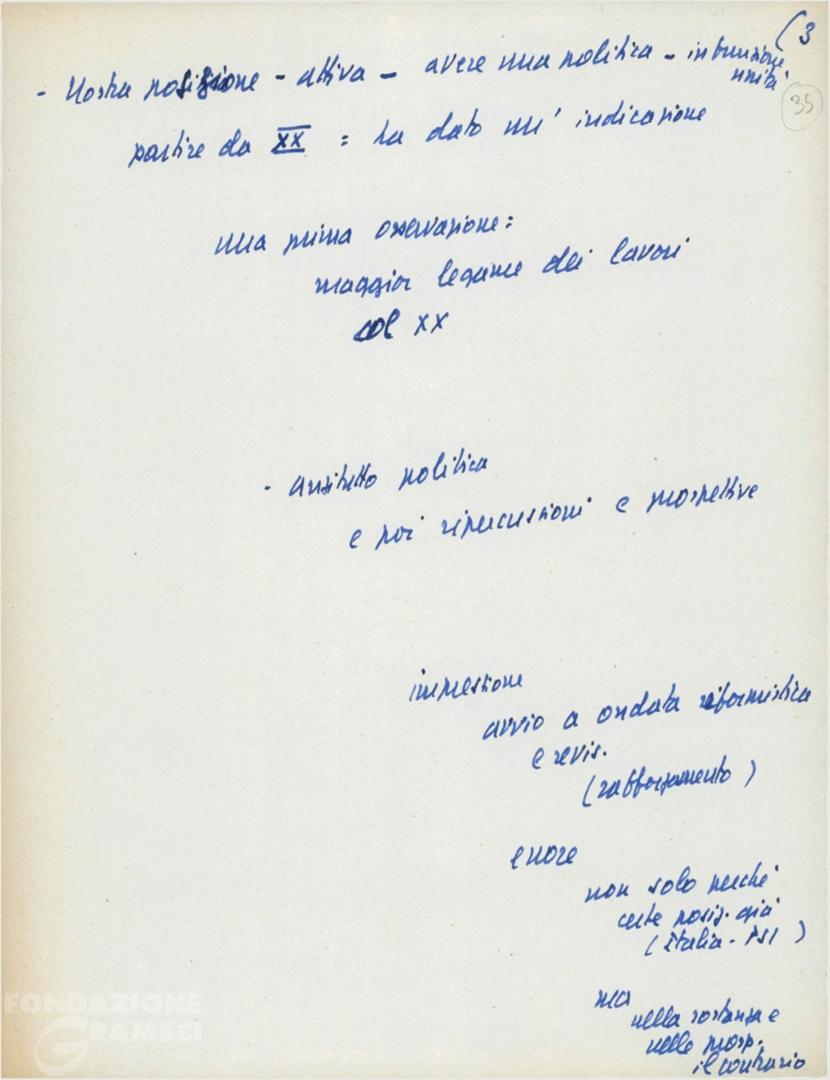 (3
- Nostra posizione - attiva - avere una politica - in funzione
unità
35
partire da XX : ha dato un' indicazione
una prima osservazione:
maggior legame dei lavori
col XX
- anzitutto politica
e poi ripercussioni e prospettive
impressione
avvio a ondata riformistica
e revis.
(rafforzamento)
errore
non solo perché
certe posiz. già
(Italia - PSI)
ma
nella sostanza e
nelle prosp.
il contrario
FONDAZIONE
GRAMSCI